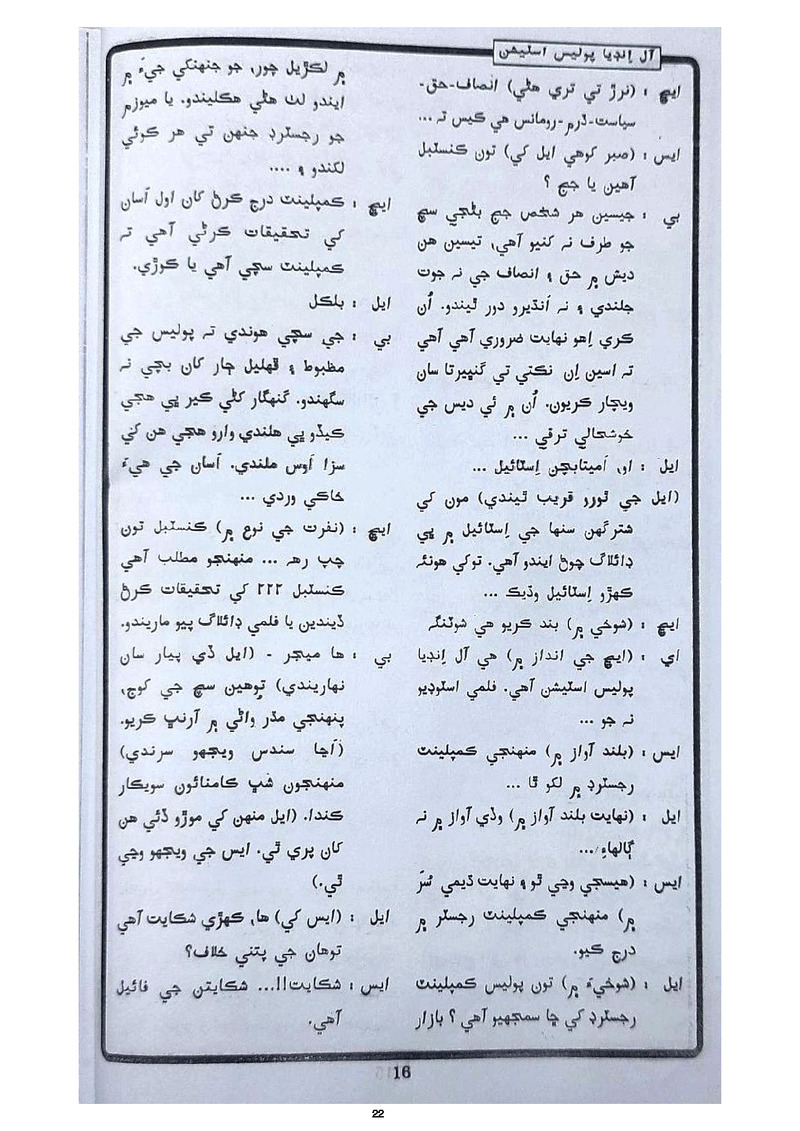 آل اِنڊيا پوليس اسٽيشن
ايڇ : (نرڙ تي تري هڻي) انصاف-حق-
سياست-ڌرم-رومانس هي ڪيس تہ ...
ايس : (صبر کوهي ايل کي) تون ڪنسٽبل
آهين يا جج ؟
بي : جيسين هر شخص جج بڻجي سچ
جو طرف نہ کنيو آهي، تيسين هن
ديش ۾ حق ۽ انصاف جي نہ جوت
جلندي ۽ نہ اَنڌيرو دور ٿيندو. اُن
ڪري اِهو نهايت ضروري آهي آهي
تہ اسين اِن نڪتي تي گنڀيرتا سان
ويچار ڪريون. اُن ۾ ئي ديس جي
خوشحالي ترقي ...
ايل : او، اَميتابچن اِسٽائيل ...
(ايل جي ٿورو قريب ٿيندي) مون کي
شترگهن سنها جي اِسٽائيل ۾ ڀي
ڊائلاگ چوڻ ايندو آهي. توکي هونئہ
ڪهڙو اِسٽائيل وڌيڪ ...
ايڇ : (شوخي ۾) بند ڪريو هي شوٽنگہ
اي : (ايڇ جي انداز ۾) هي آل اِنڊيا
پوليس اسٽيشن آهي. فلمي اسٽوڊيو
نہ جو ...
ايس : (بلند آواز ۾) منهنجي ڪمپلينٽ
رجسٽرڊ ۾ لکو ٿا ...
ايل : (نهايت بلند آواز ۾) وڏي آواز ۾ نہ
ڳالهاءِ ...
ايس : (هيسجي وڃي ٿو ۽ نهايت ڌيمي سُرَ
۾) منهنجي ڪمپلينٽ رجسٽر ۾
درج ڪيو.
ايل : (شوخيءَ ۾) تون پوليس ڪمپلينٽ
رجسٽرڊ کي ڇا سمجهيو آهي ؟ بازار
۾ لڪڙيل چور، جو جنهنکي جيءُ ۾
ايندو لٺ هڻي هڪليندو. يا ميوزم
جو رجسٽرڊ جنهن تي هر ڪوئي
لکندو ۽ ....
ايڇ : ڪمپلينٽ درج ڪرڻ کان اول اَسان
کي تحقيقات ڪرڻي آهي تہ
ڪمپلينٽ سچي آهي يا ڪوڙي.
ايل : بلڪل
بي : جي سچي هوندي تہ پوليس جي
مظبوط ۽ ڦهليل ڄار کان بچي نہ
سگهندو. گنهگار کڻي ڪير ڀي هجي
ڪيڏو ڀي هلندي وارو هجي هن کي
سزا اَوس ملندي. اَسان جي هيءَ
خاڪي وردي ...
ايڇ : (نفرت جي نوع ۾) ڪنسٽبل تون
چپ رهہ ... منهنجو مطلب آهي
ڪنسٽبل ۲۲۲ کي تحقيقات ڪرڻ
ڏيندين يا فلمي ڊائلاگ پيو ماريندو.
بي : ها ميجر - (ايل ڏي پيار سان
نهاريندي) توهين سچ جي کوج،
پنهنجي مڌر واڻي ۾ آرنڀ ڪريو.
(اَڃا سندس ويجهو سرندي)
منهنجون شڀ ڪامنائون سويڪار
ڪندا. (ايل منهن کي موڙو ڏئي هن
کان پري ٿي. ايس جي ويجهو وڃي
ٿي.)
ايل : (ايس کي) ها، ڪهڙي شڪايت آهي
توهان جي پتني خلاف؟
ايس : شڪايت!!... شڪايتن جي فائيل
آهي.
16
22